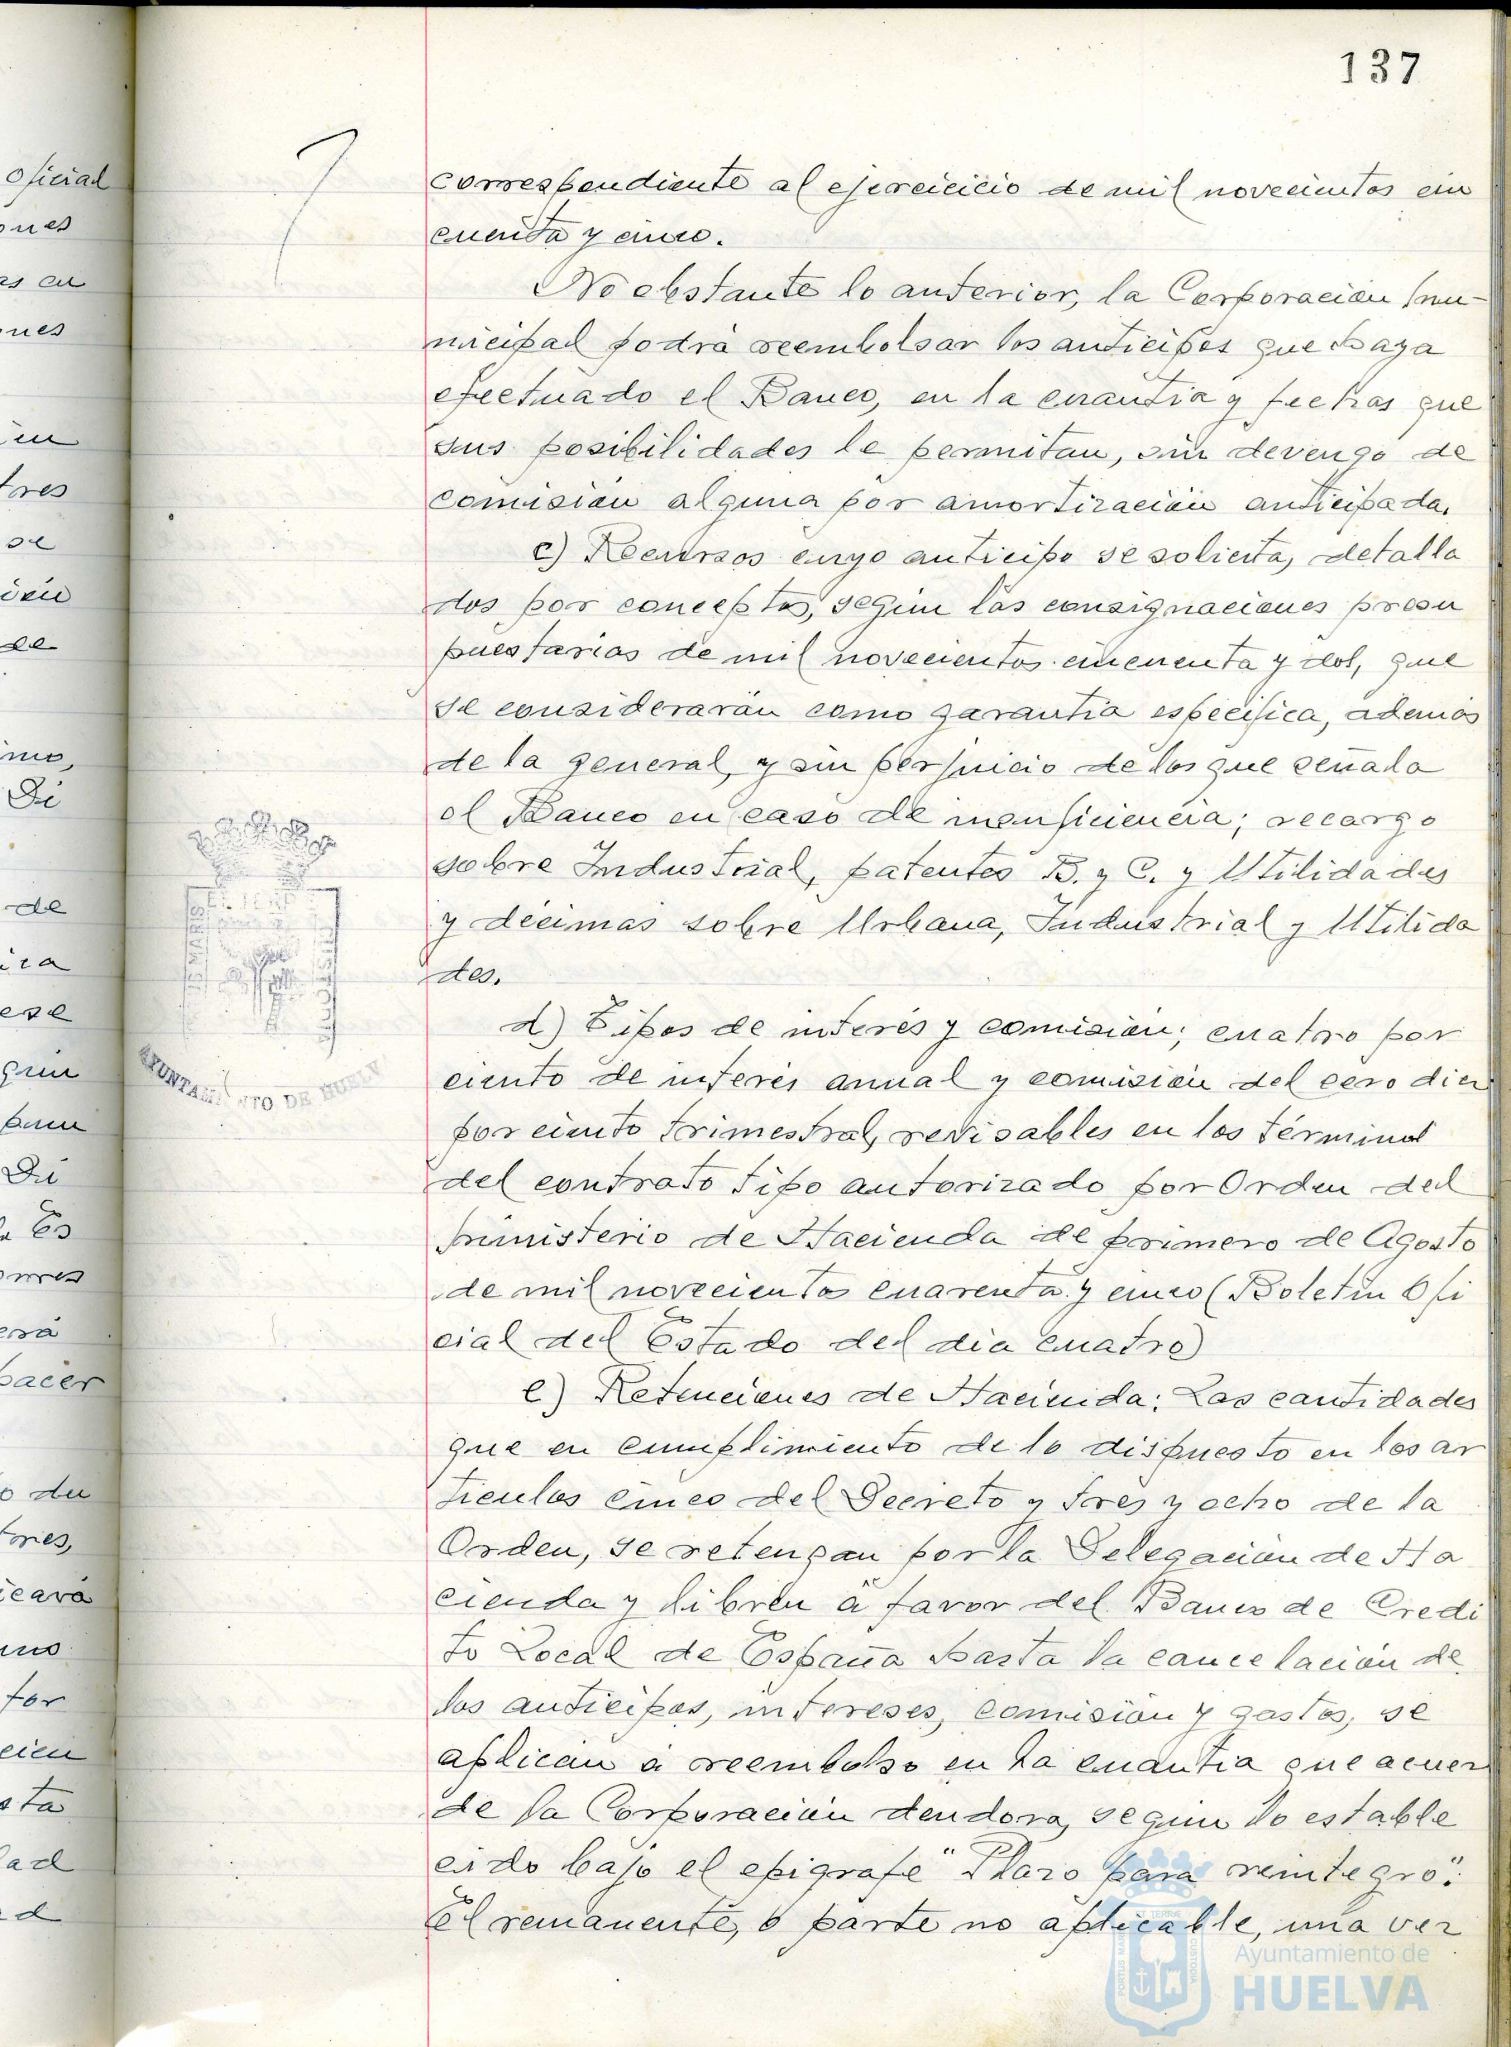 137
oficial
ones
as en
ones
tres
se
ión
de
imo,
Di
de
ica
ese
gún
pun
Di
Es
ores
erá
hacer
o du
tores,
icará
uno
for
cien
sta
dad
d
correspondiente al ejercicicio de mil novecientos cin
cuenta y cinco.
No obstante lo anterior, la Corporación mu-
nicipal podrá reembolsar los anticipos que haya
efectuado el Banco, en la cuantía y fechas que
sus posibilidades le permitan, sin devengo de
comisión alguna por amortización anticipada.
c) Recursos cuyo anticipo se solicita, detalla
dos por conceptos, según las consignaciones presu
puestarias de mil novecientos cincuenta y dos, que
se considerarán como garantía específica, además
de la general, y sin perjuicio de los que señala
el Banco en caso de insuficiencia; recargo
sobre Industrial, patentes B. y C. y Utilidades
y décimas sobre Urbana, Industrial y Utilida
des.
d) Tipos de interés y comisión; cuatro por
ciento de interés anual y comisión del cero diez
por ciento trimestral, revisables en los términos
del contrato tipo autorizado por Orden del
Ministerio de Hacienda de primero de Agosto
de mil novecientos cuarenta y cinco (Boletín Ofi
cial del Estado del día cuatro)
e) Retenciones de Hacienda: Las cantidades
que en cumplimiento de lo dispuesto en los ar
tículos cinco del Decreto y tres y ocho de la
Orden, se retengan por la Delegación de Ha
cienda y libren á favor del Banco de Crédi
to Local de España hasta la cancelación de
los anticipos, intereses, comisión y gastos, se
aplican a reembolso en la cuantía que acuer
de la Corporación deudora, según lo estable
cido bajo el epígrafe "Plazo para reintegro".
El remanente, o parte no aplicable, una vez
AYUNTAMIENTO DE HUELV
Ayuntamiento de
HUELVA